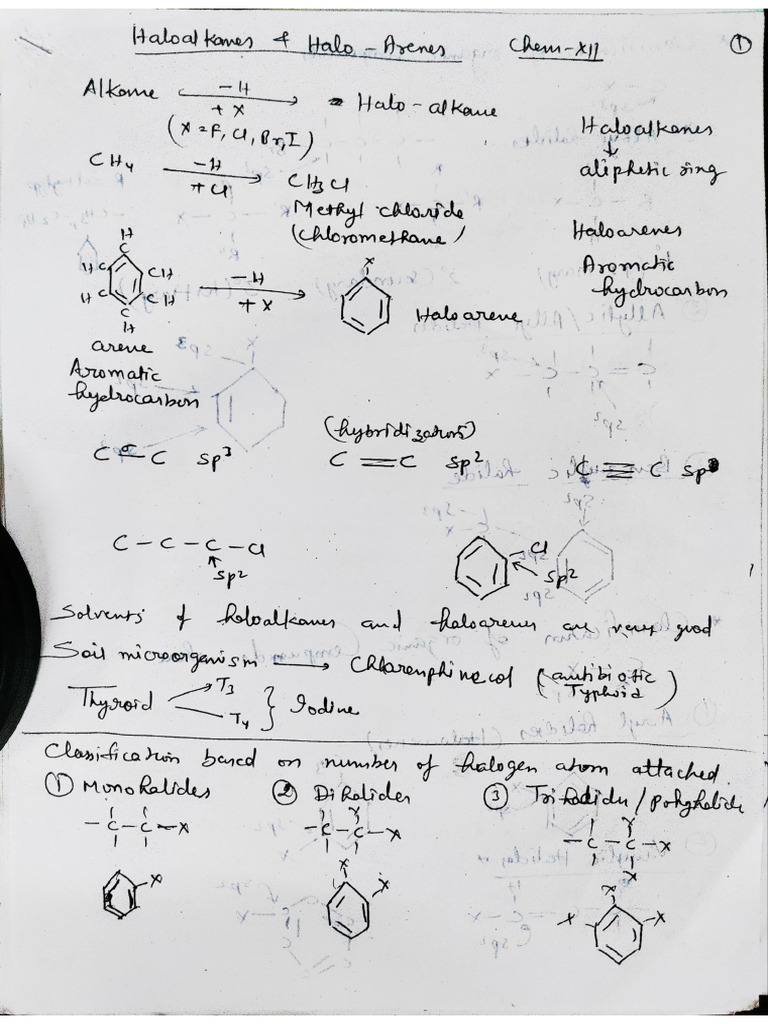 Haloalkanes & Halo-Arenes Chem-XII ①
Alkane —H→ +X Halo-alkane
(X = F, Cl, Br, I)
Haloalkanes
↓
aliphetic ring
CH4 —H→ +Cl CH3Cl
Methyl chloride
(chloromethane)
Haloarenes
Aromatic
hydrocarbon
H
C
HC CH
HC CH
C
H
—H→ +X
X
Haloarene
arene
Aromatic
hydrocarbon
(hybridization)
C – C sp3 C = C sp2 C ≡ C sp
C – C – C – Cl
sp2
Cl
sp2
Solvents of haloalkanes and haloarenes are very good
Soil microorganism → Chloramphinecol (antibiotic Typhoid)
Thyroid T3 T4 } Iodine
Classification based on number of halogen atom attached.
① Monohalides ② Dihalides ③ Trihalide / polyhalide
– C – C – X
X
X
– C – C – X
X
X
X
– C – C – X
X
X
X X